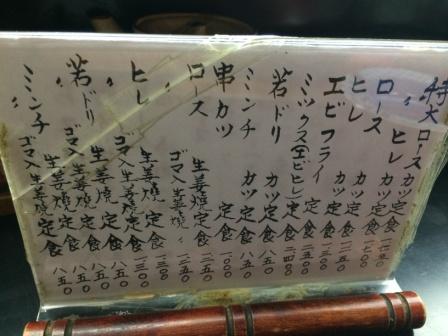 特大ロースカツ定食
〃ヒレカツ定食
ロースカツ定食
ヒレカツ定食 一三〇〇
エビフライ定食
ミックス(エビヒレ)定食
若ドリカツ定食 八五〇
ミンチカツ定食 八五〇
串カツ定食
ロース生姜焼定食 一二五〇
〃ゴマ入生姜焼〃 一二五〇
ヒレ生姜焼定食 一三〇〇
〃ゴマ入生姜焼定食 一三〇〇
若ドリ生姜焼定食 八五〇
〃ゴマ入生姜焼定食 八五〇
ミンチ生姜焼定食 八五〇
〃ゴマ入生姜焼定食 八五〇